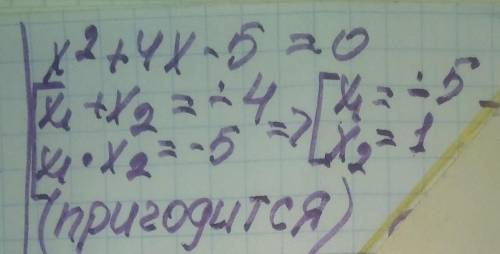 x²+4x-5=0
[x₁+x₂=-4
x₁·x₂=-5 => [x₁=-5
x₂=1
(пригодится)